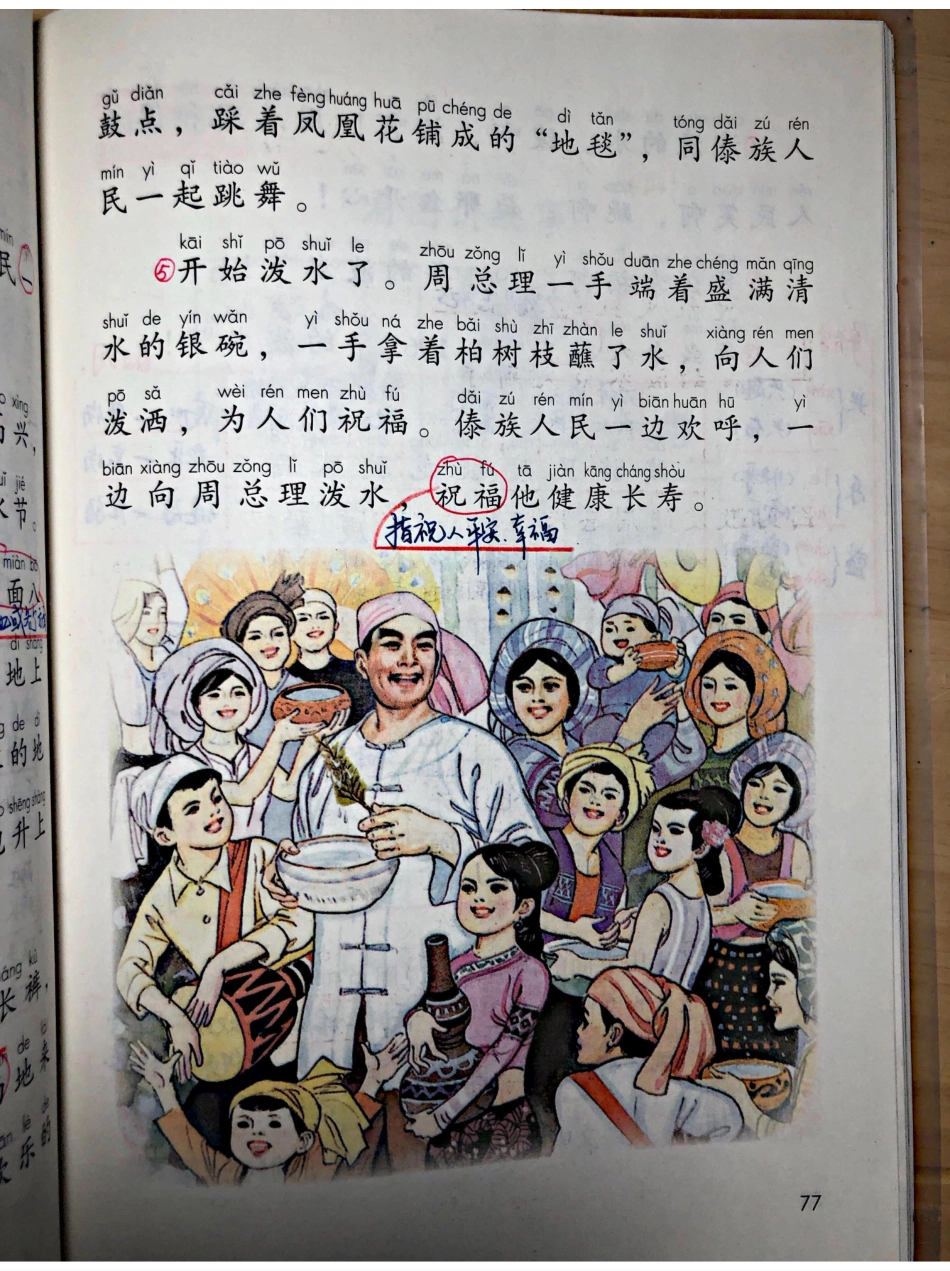 gǔ diǎn cǎi zhe fèng huáng huā pū chéng de dì tǎn tóng dǎi zú rén
鼓点，踩着凤凰花铺成的“地毯”，同傣族人
mín yì qǐ tiào wǔ
民一起跳舞。
kāi shǐ pō shuǐ le zhōu zǒng lǐ yì shǒu duān zhe chéng mǎn qīng
⑤开始泼水了。周总理一手端着盛满清
shuǐ de yín wǎn yì shǒu ná zhe bǎi shù zhī zhàn le shuǐ xiàng rén men
水的银碗，一手拿着柏树枝蘸了水，向人们
pō sǎ wèi rén men zhù fú dǎi zú rén mín yì biān huān hū yì
泼洒，为人们祝福。傣族人民一边欢呼，一
biān xiàng zhōu zǒng lǐ pō shuǐ zhù fú tā jiàn kāng cháng shòu
边向周总理泼水，祝福他健康长寿。
指祝人平安、幸福
mín
民
xīng
兴，
jié
节。
miàn bā
面八
地上
de dì
的地
shēng shàng
升上
kù
长裤，
de
地来
lè de
乐的
77